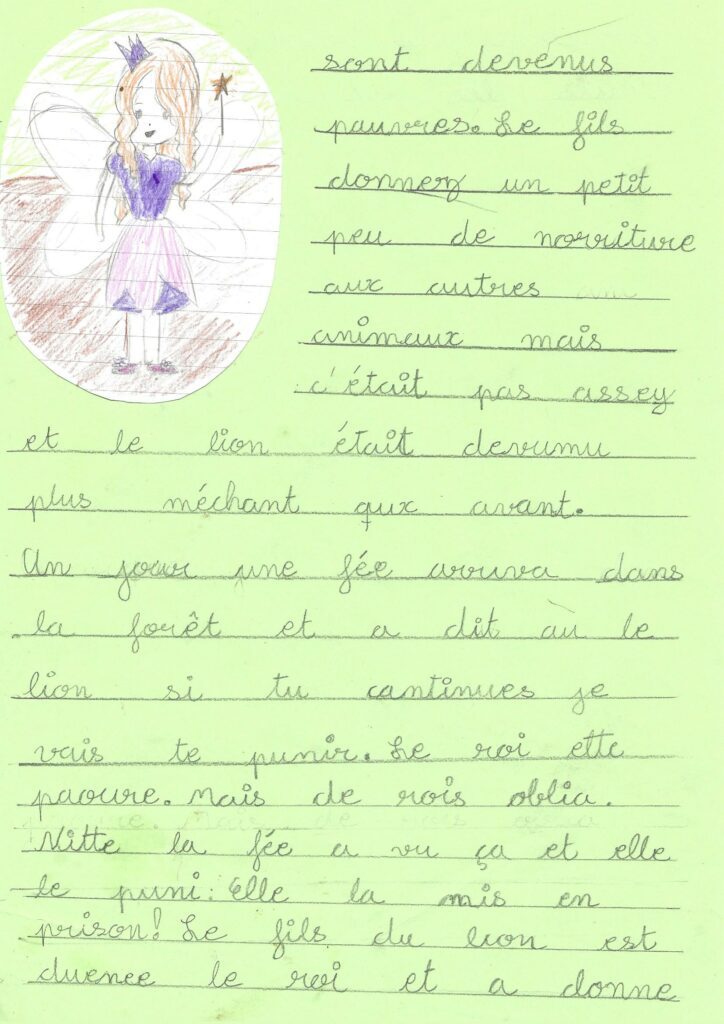 sont devenus
pauvres. Le fils
donnez un petit
peu de norriture
aux autres
animaux mais
c'était pas assey
et le lion était devumu
plus méchant qux avant.
Un jour une fée arriva dans
la forêt et a dit au le
lion si tu continues je
vais te punir. Le roi ette
paovre. Mais de rois oblia.
Nitte la fée a vu ça et elle
le puni. Elle la mis en
prison! Le fils du lion est
duenee le roi et a donne